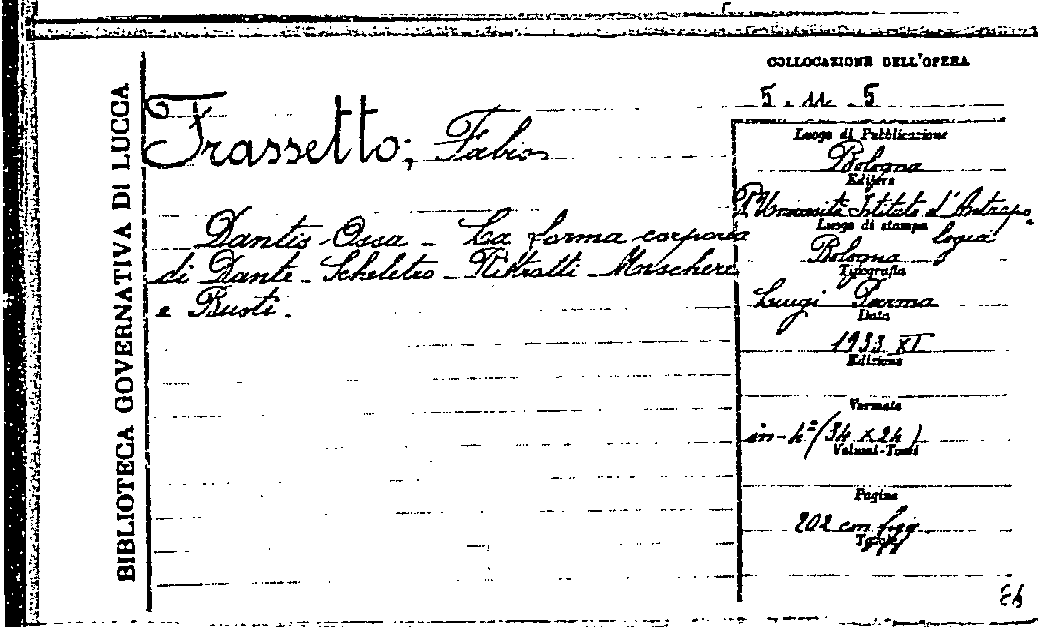 BIBLIOTECA GOVERNATIVA DI LUCCA
COLLOCAZIONE DELL'OPERA
5 . 11 . 5
Frassetto, Fabio
Dantis Ossa - La forma corporea
di Dante - Scheletro - Ritratti - Maschere
e Busti.
Luogo di Pubblicazione
Bologna
Editore
R. Università Istituto d'Antropo
logia
Luogo di stampa
Bologna
Tipografia
Luigi Parma
Data
1933 XI
Edizione
Formato
in-4º (34 x 24)
Volumi-Tomi
Pagine
202 con figg.